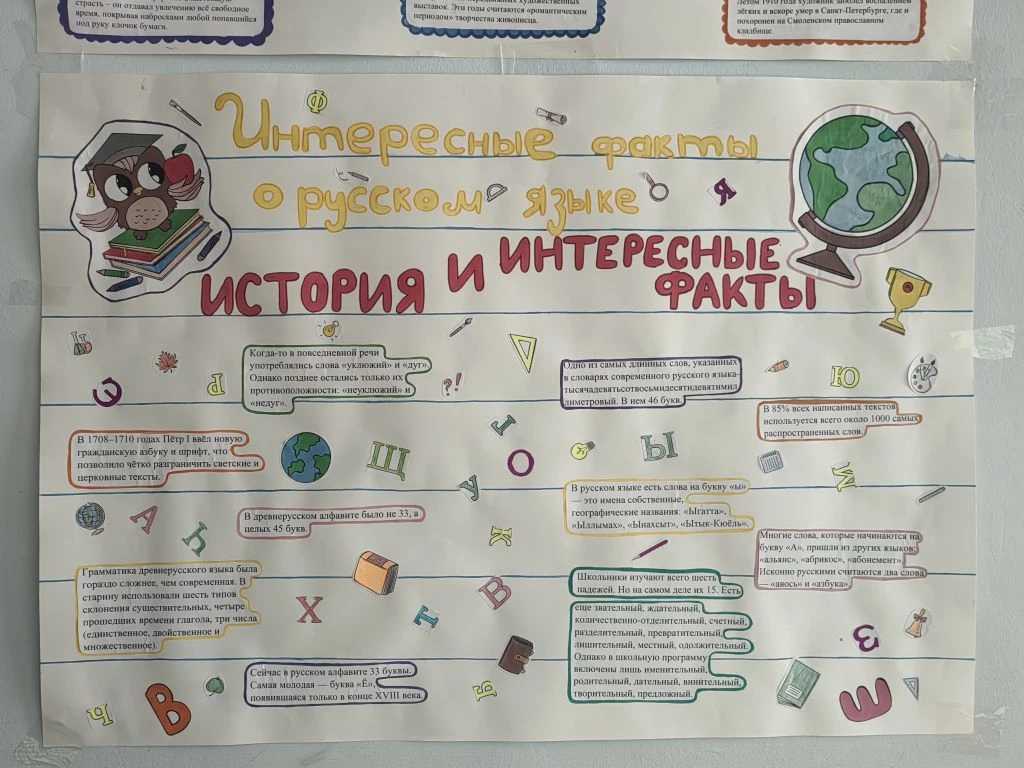 страсть – он отдавал увлечению всё свободное
время, покрывая набросками любой попавшийся
под руку клочок бумаги.
выставок. Эти годы считаются «романтическим
периодом» творчества живописца.
Летом 1910 года художник заболел воспалением
лёгких и вскоре умер в Санкт-Петербурге, где и
похоронен на Смоленском православном
кладбище.
Интересные факты
о русском языке
ИСТОРИЯ И ИНТЕРЕСНЫЕ
ФАКТЫ
Когда-то в повседневной речи
употреблялись слова «уклюжий» и «дуг».
Однако позднее остались только их
противоположности: «неуклюжий» и
«недуг».
Одно из самых длинных слов, указанных
в словарях современного русского языка-
тысячадевятьсотвосьмидесятидевятимил
лиметровый. В нем 46 букв.
В 85% всех написанных текстов
используется всего около 1000 самых
распространенных слов.
В 1708–1710 годах Пётр I ввёл новую
гражданскую азбуку и шрифт, что
позволило чётко разграничить светские и
церковные тексты.
В русском языке есть слова на букву «ы»
— это имена собственные,
географические названия: «Ыгатта»,
«Ыллымах», «Ынахсыт», «Ытык-Кюёль».
В древнерусском алфавите было не 33, а
целых 45 букв.
Многие слова, которые начинаются на
букву «А», пришли из других языков:
«альянс», «абрикос», «абонемент».
Исконно русскими считаются два слова
— «авось» и «азбука».
Грамматика древнерусского языка была
гораздо сложнее, чем современная. В
старину использовали шесть типов
склонения существительных, четыре
прошедших времени глагола, три числа
(единственное, двойственное и
множественное).
Школьники изучают всего шесть
падежей. Но на самом деле их 15. Есть
еще звательный, ждательный,
количественно-отделительный, счетный,
разделительный, превратительный,
лишительный, местный, одолжительный.
Однако в школьную программу
включены лишь именительный,
родительный, дательный, винительный,
творительный, предложный.
Сейчас в русском алфавите 33 буквы.
Самая молодая — буква «Ё»,
появившаяся только в конце XVIII века.
Ф
Я
Э
Р
?!
Ю
Г
Щ
О
Ы
У
М
А
Ж
Х
Т
В
З
Ч
В
Ш